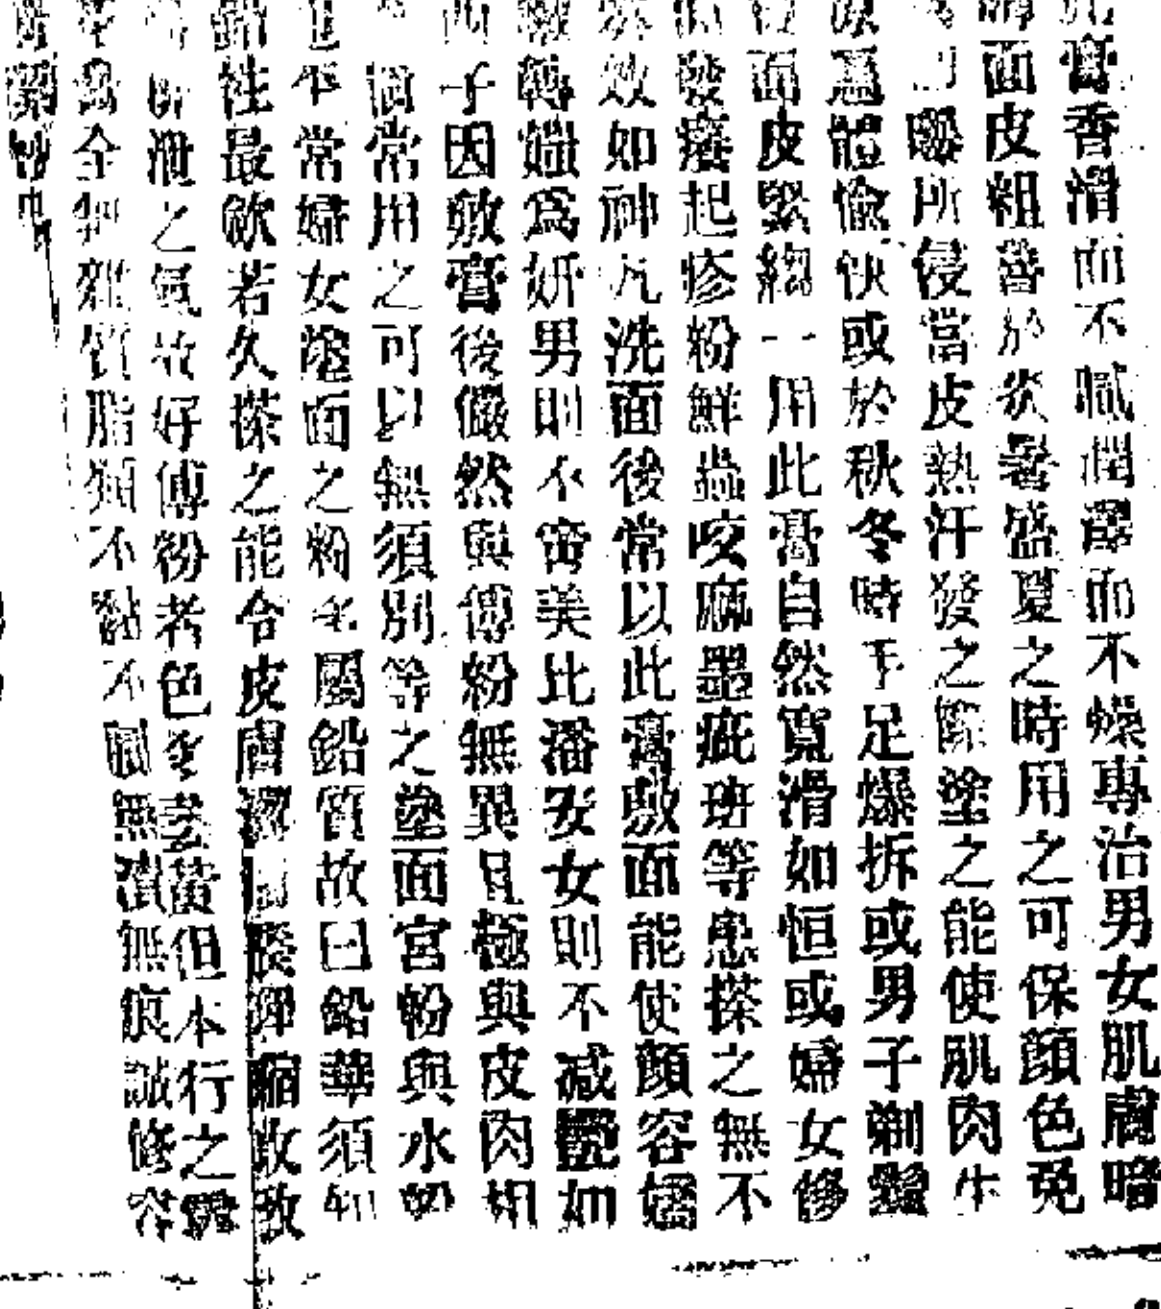 膏香滑而不膩潤澤而不燥專治男女肌膚暗
滑面皮粗當於炎暑盛夏之時用之可保顏色免
曝所侵當皮熱汗發之際塗之能使肌肉生
涼爲體愉快或於秋冬時手足爆拆或男子剃鬚
面皮緊縐一用此膏自然寬滑如恒或婦女修
發癢起疹粉鮮蟲咬麻墨疵班等患搽之無不
效如神凡洗面後常以此膏敷面能使顏容嬌
嫩轉媸爲妍男則不啻美比潘安女則不减艷如
西子因敷膏後儼然與傅粉無異且極與皮肉相
個常用之可以無須別等之塗面宮粉與水粉
不常婦女塗面之粉屬鉛質故曰鉛華須知
鉛性最歛若久搽之能令皮膚澀腠理縮收致
泄之氣故好傅粉者色黃但本行之
全無雜質脂類不黏不膩無漬無痕誠修容
藥妙